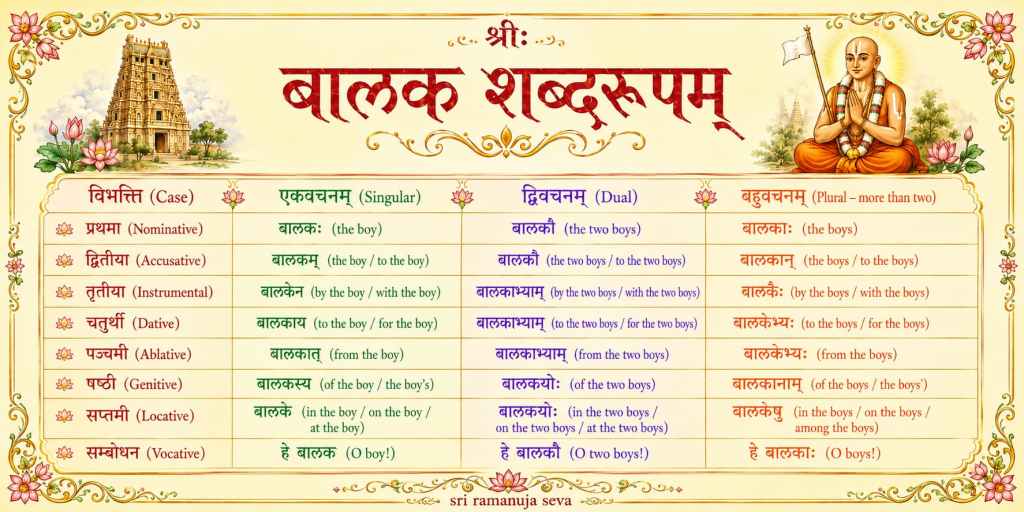 श्रीः
बालक शब्दरूपम्
विभक्ति (Case) एकवचनम् (Singular) द्विवचनम् (Dual) बहुवचनम् (Plural – more than two)
प्रथमा (Nominative) बालकः (the boy) बालकौ (the two boys) बालकाः (the boys)
द्वितीया (Accusative) बालकम् (the boy / to the boy) बालकौ (the two boys / to the two boys) बालकान् (the boys / to the boys)
तृतीया (Instrumental) बालकेन (by the boy / with the boy) बालकाभ्याम् (by the two boys / with the two boys) बालकैः (by the boys / with the boys)
चतुर्थी (Dative) बालकाय (to the boy / for the boy) बालकाभ्याम् (to the two boys / for the two boys) बालकेभ्यः (to the boys / for the boys)
पञ्चमी (Ablative) बालकात् (from the boy) बालकाभ्याम् (from the two boys) बालकेभ्यः (from the boys)
षष्ठी (Genitive) बालकस्य (of the boy / the boy's) बालकयोः (of the two boys) बालकानाम् (of the boys / the boys')
सप्तमी (Locative) बालके (in the boy / on the boy / at the boy) बालकयोः (in the two boys / on the two boys / at the two boys) बालकेषु (in the boys / on the boys / among the boys)
सम्बोधन (Vocative) हे बालक (O boy!) हे बालकौ (O two boys!) हे बालकाः (O boys!)
sri ramanuja seva